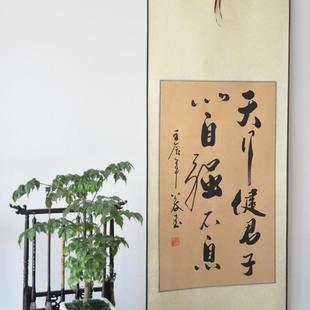 天行健君子
以自强不息
壬辰年